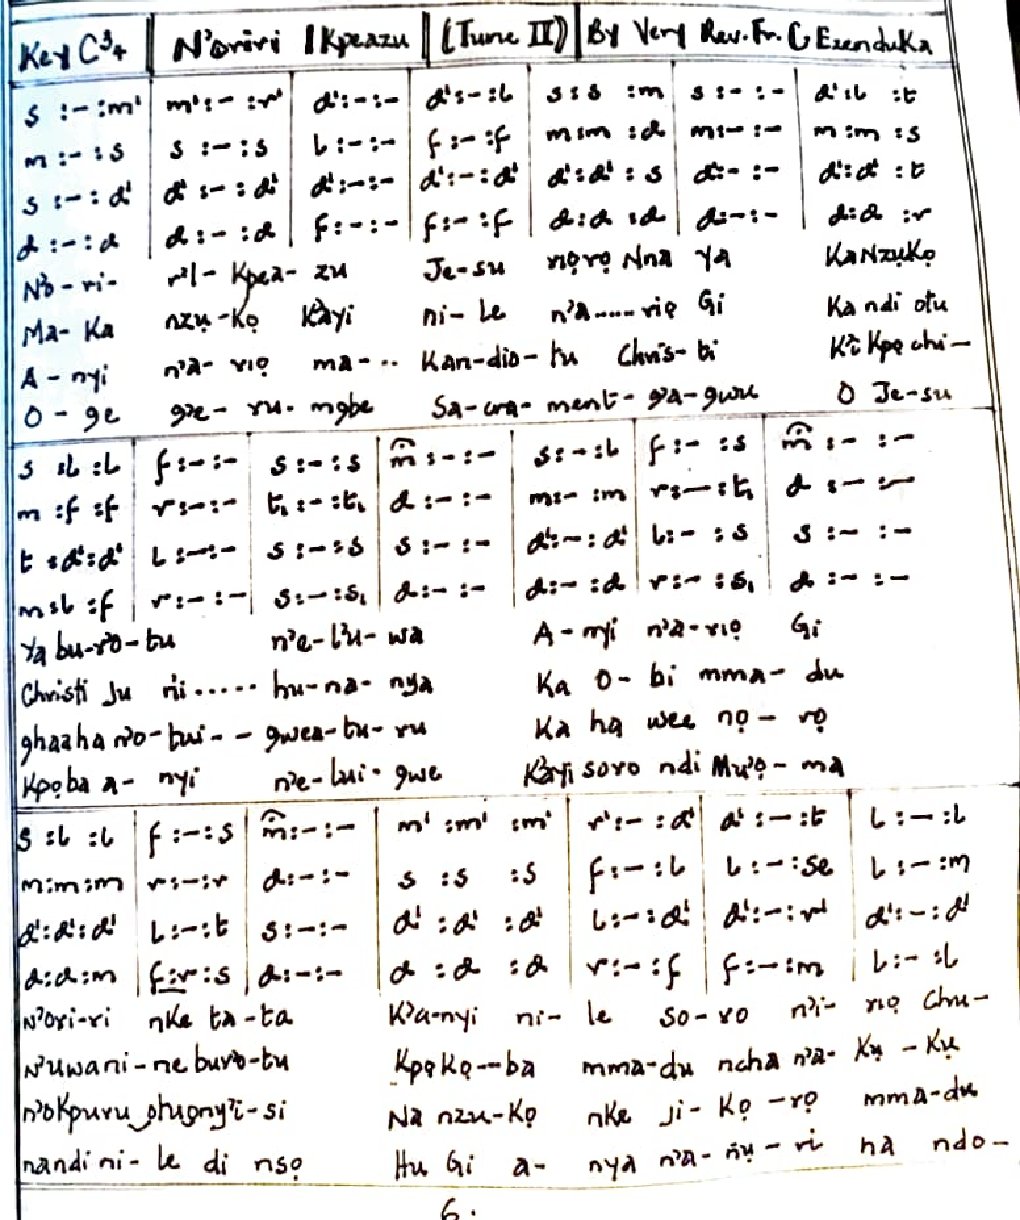 Key C 3/4 N'oriri Ikpeazu (Tune II) By Very Rev. Fr. C Ezenduka
s :- :m' | m' :- :r' | d' :- :- | d' :- :l | s :s :m | s :- :- | d' :l :t
m :- :s | s :- :s | l :- :- | f :- :f | m :m :d | m :- :- | m :m :s
s :- :d' | d' :- :d' | d' :- :- | d' :- :d' | d' :d' :s | d' :- :- | d' :d' :t
d :- :d | d :- :d | f :- :- | f :- :f | d :d :d | d :- :- | d :d :r
N'o - ri- ri- Kpea- zu Je-su nọrọ Nna Ya KaNzụkọ
Ma- Ka nzụ-Kọ Kàyi ni- Le n'a....riọ Gi Ka ndi otu
A - nyi n'a- riọ ma- .. Kan-dio- tu Chris- ti Kpọ chi-
O - ge g'e- ru. mgbe Sa-cra- ment- g'a-gwu O Je-su
s :l :l | f :- :- | s :- :s | m :- :- | s :- :l | f :- :s | m :- :-
m :f :f | r :- :- | t₁ :- :t₁ | d :- :- | m :- :m | r :- :t₁ | d :- :-
t :d' :d' | l :- :- | s :- :s | s :- :- | d' :- :d' | l :- :s | s :- :-
m :l :f | r :- :- | s :- :s₁ | d :- :- | d :- :d | r :- :s₁ | d :- :-
Ya bu-ro-tu n'e-l'u-wa A- nyi n'a-riọ Gi
Christi Ju ri...... hu-na- nya Ka O- bi mma- du
ghaaha n'o-tui- - gwea-tu-ru Ka ha wee nọ - rọ
Kpọba a- nyi n'e-lui- gwe K'ayi soro ndi Mu'ọ- ma
s :l :l | f :- :s | m :- :- | m' :m' :m' | r' :- :d' | d' :- :t | l :- :l
m :m :m | r :- :r | d :- :- | s :s :s | f :- :l | l :- :se | l :- :m
d' :d' :d' | l :- :t | s :- :- | d' :d' :d' | l :- :d' | d' :- :r' | d' :- :d'
d :d :m | f :r :s | d :- :- | d :d :d | r :- :f | f :- :m | l :- :l
N'ori-ri nke ta-ta K'a-nyi ni- le so-ro n'i- nọ Chu-
N'uwani-ne buro-tu Kpọkọ--ba mma-du ncha n'a- Kụ - Kụ
n'okpuru -si Na nzu-Kọ nke ji- Kọ -rọ mma-du
nandi ni- le di nsọ Hu Gi a- nya n'a- ńụ - ri na ndo-
6.